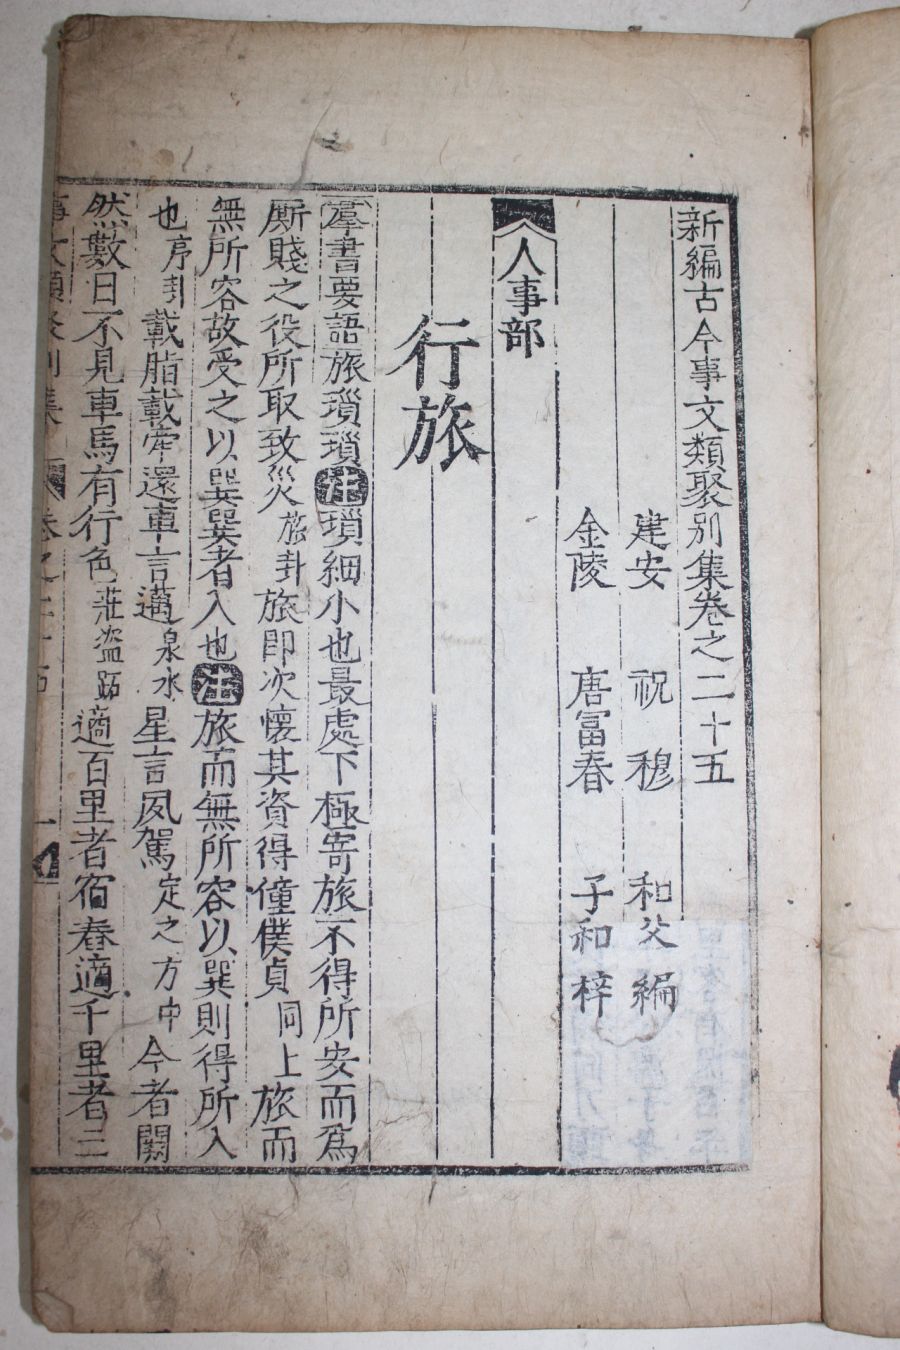 新編古今事文類聚別集卷之二十五
建安 祝 穆 和父 編
金陵 唐富春 子和 梓
人事部
行旅
羣書要語旅瑣瑣注瑣細小也最處下極寄旅不得所安而爲
厮賤之役所取致災旅卦旅即次懷其資得僮僕貞同上旅而
無所容故受之以巽巽者入也注旅而無所容以巽則得所入
也序卦載脂載舝還車言邁泉水星言夙駕定之方中今者闕
然數日不見車馬有行色莊盗跖適百里者宿舂適千里者三
事文類聚別集 卷之二十五 一